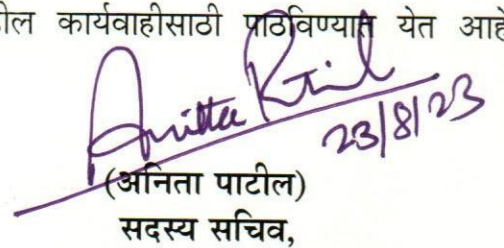 ील कार्यवाहीसाठी पाठविण्यात येत आहे
Anita Patil
23/8/23
(अनिता पाटील)
सदस्य सचिव,